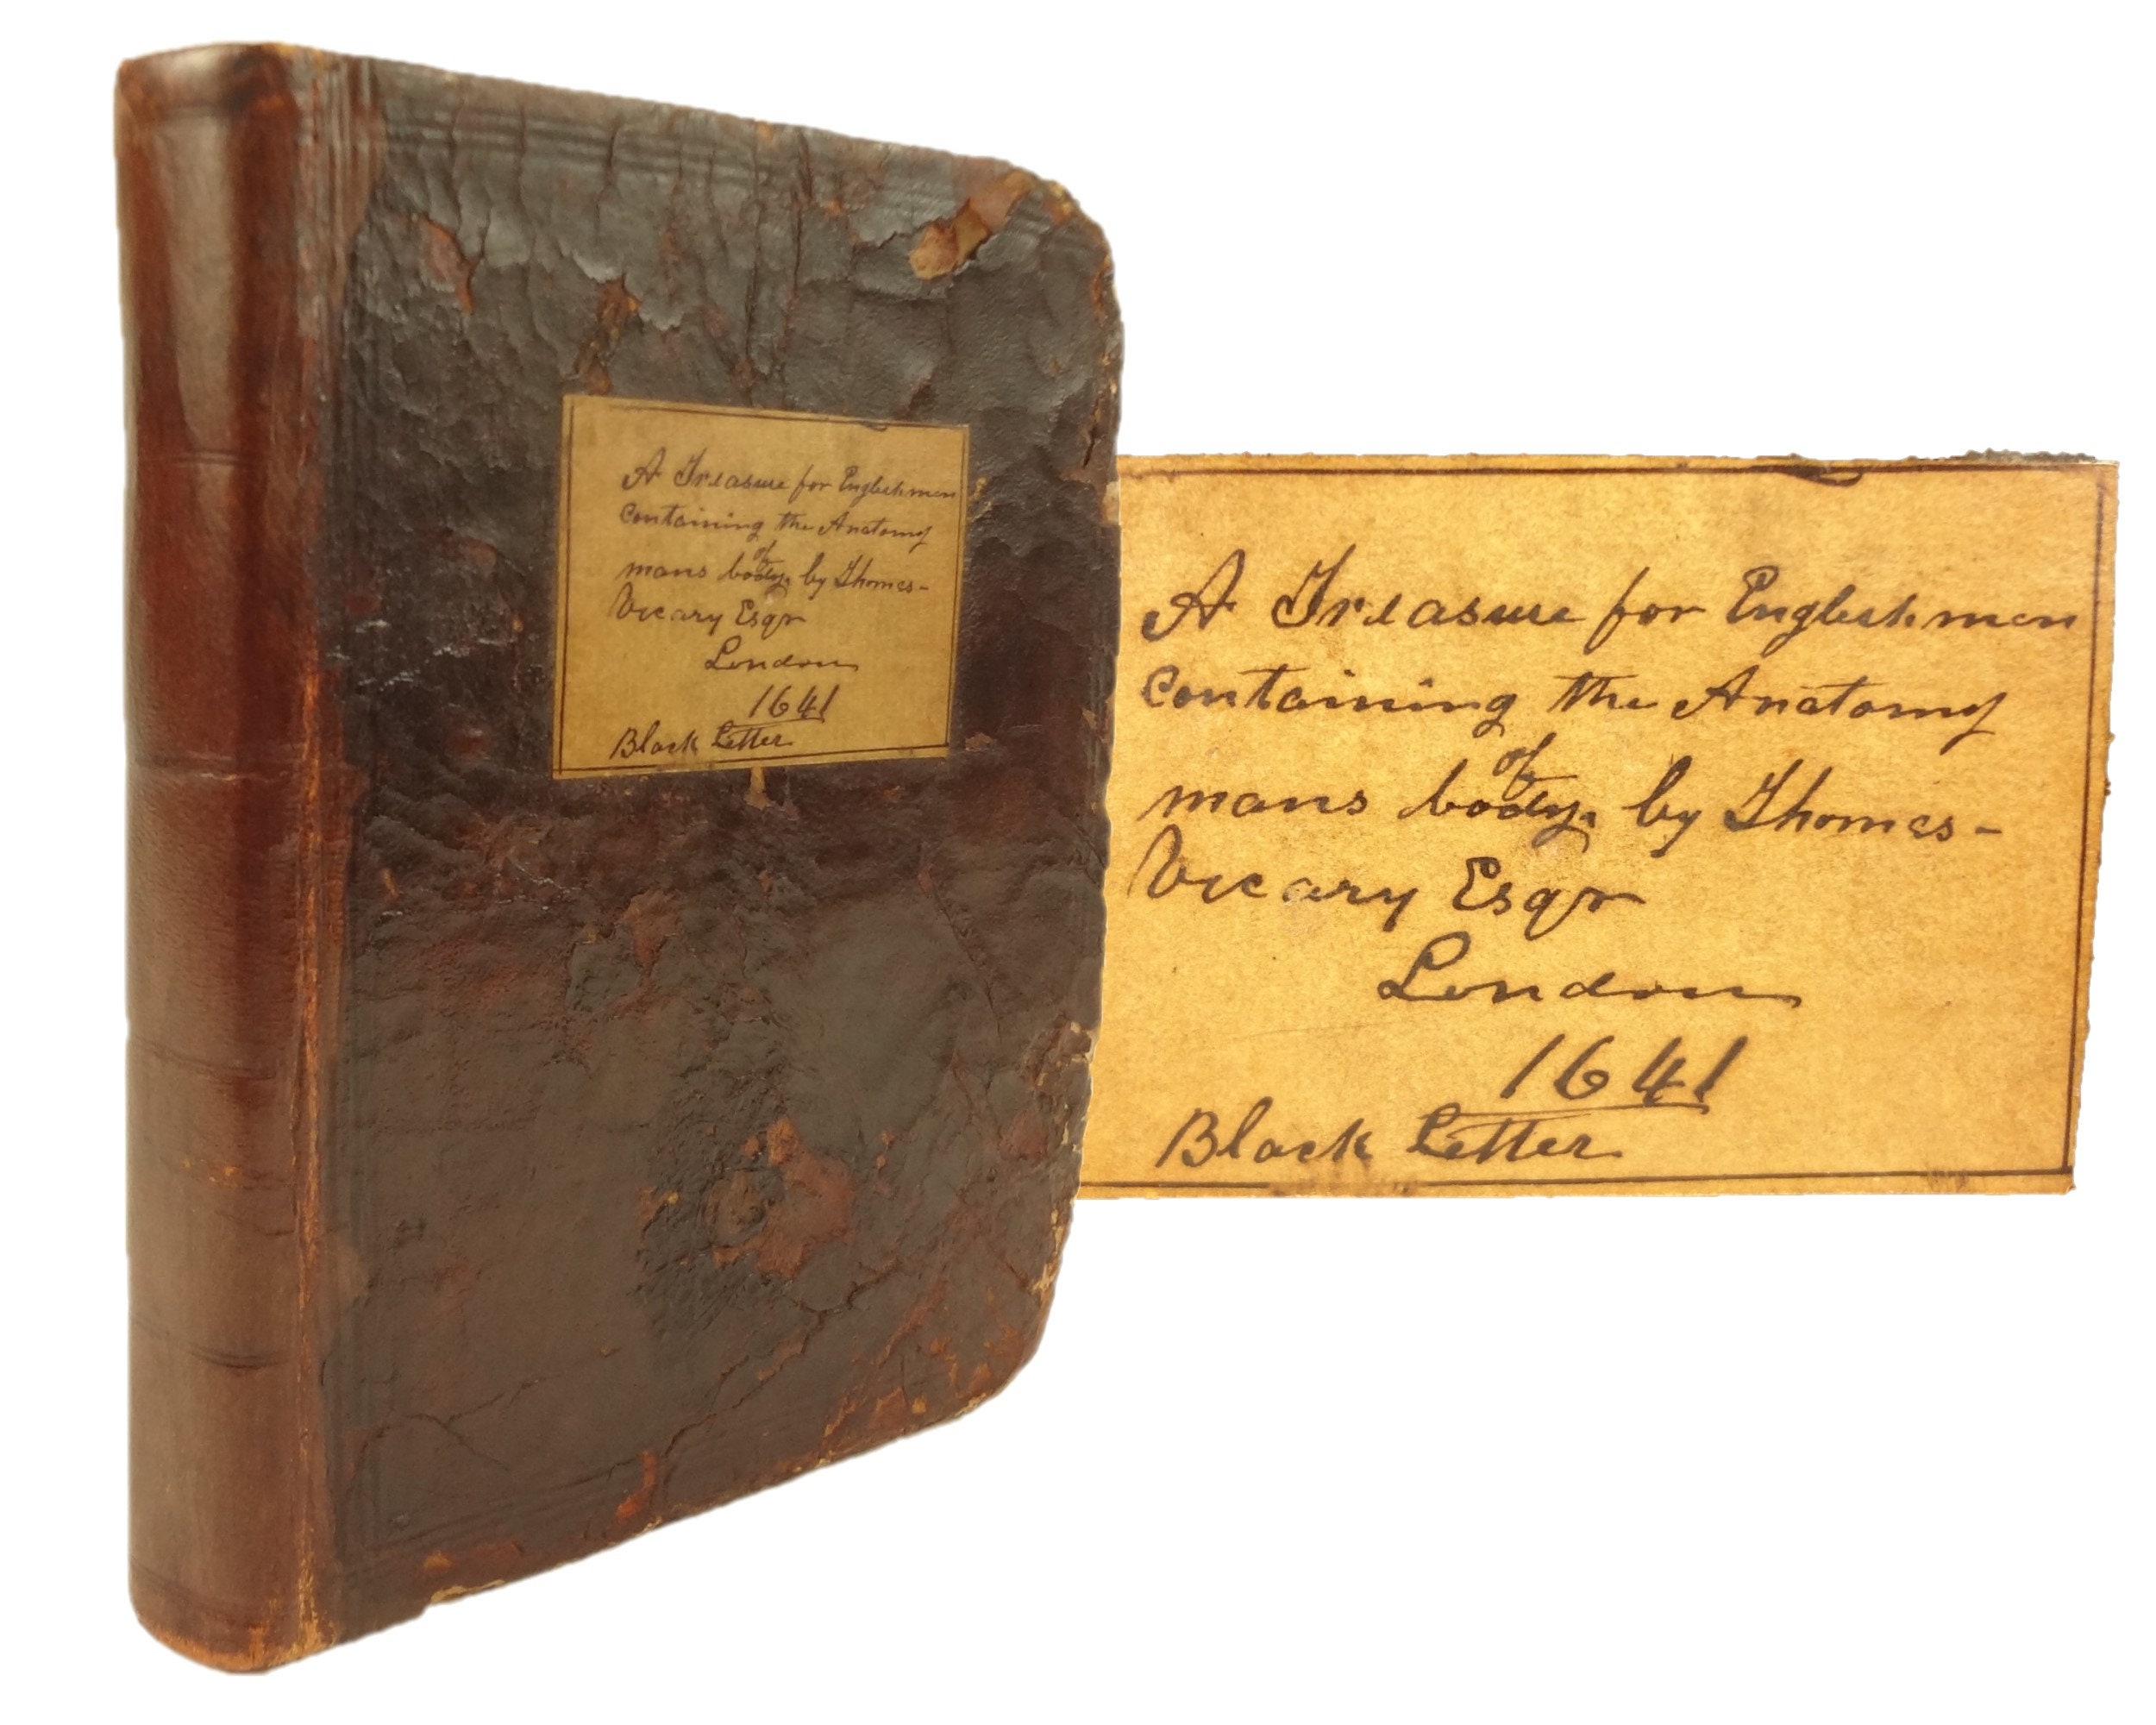 A Treasure for Englishmen
containing the Anatomy
of
mans body, by Thomas-
Vicary Esqr
London
1641
Black Letter
A Treasure for Englishmen
containing the Anatomy
of
mans body, by Thomas-
Vicary Esqr
London
1641
Black Letter